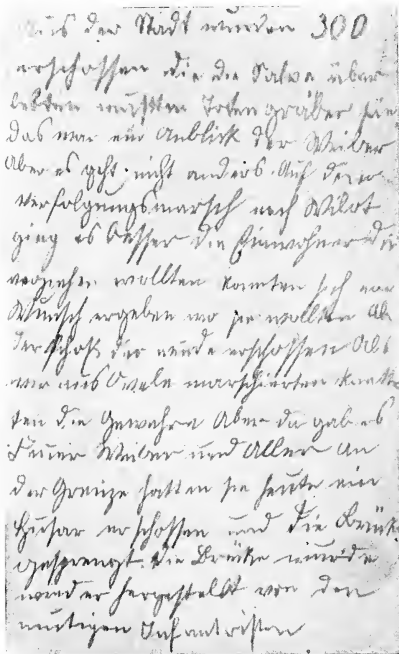 Aus der Stadt wurden 300
erschossen die die Salve über
lebten mußten Totengräber sein
das war ein Anblick der Weiber
Aber es geht nicht anders. Auf dem
verfolgungsmarsch nach Wilot
ging es besser die Einwohner die
verziehen wollten konnten sich nach
Wunsch ergeben wo sie wollten Ab
der schoß der wurde erschossen Als
wir aus Owele marschierten knatter
ten die Gewehre Aber da gab es
Feuer Weiber und Alles An
der Grenze hatten sie heute ein
Husar erschossen und die Brück
gesprengt. die Brücke wurde
wieder hergestellt von den
mutigen Infantristen